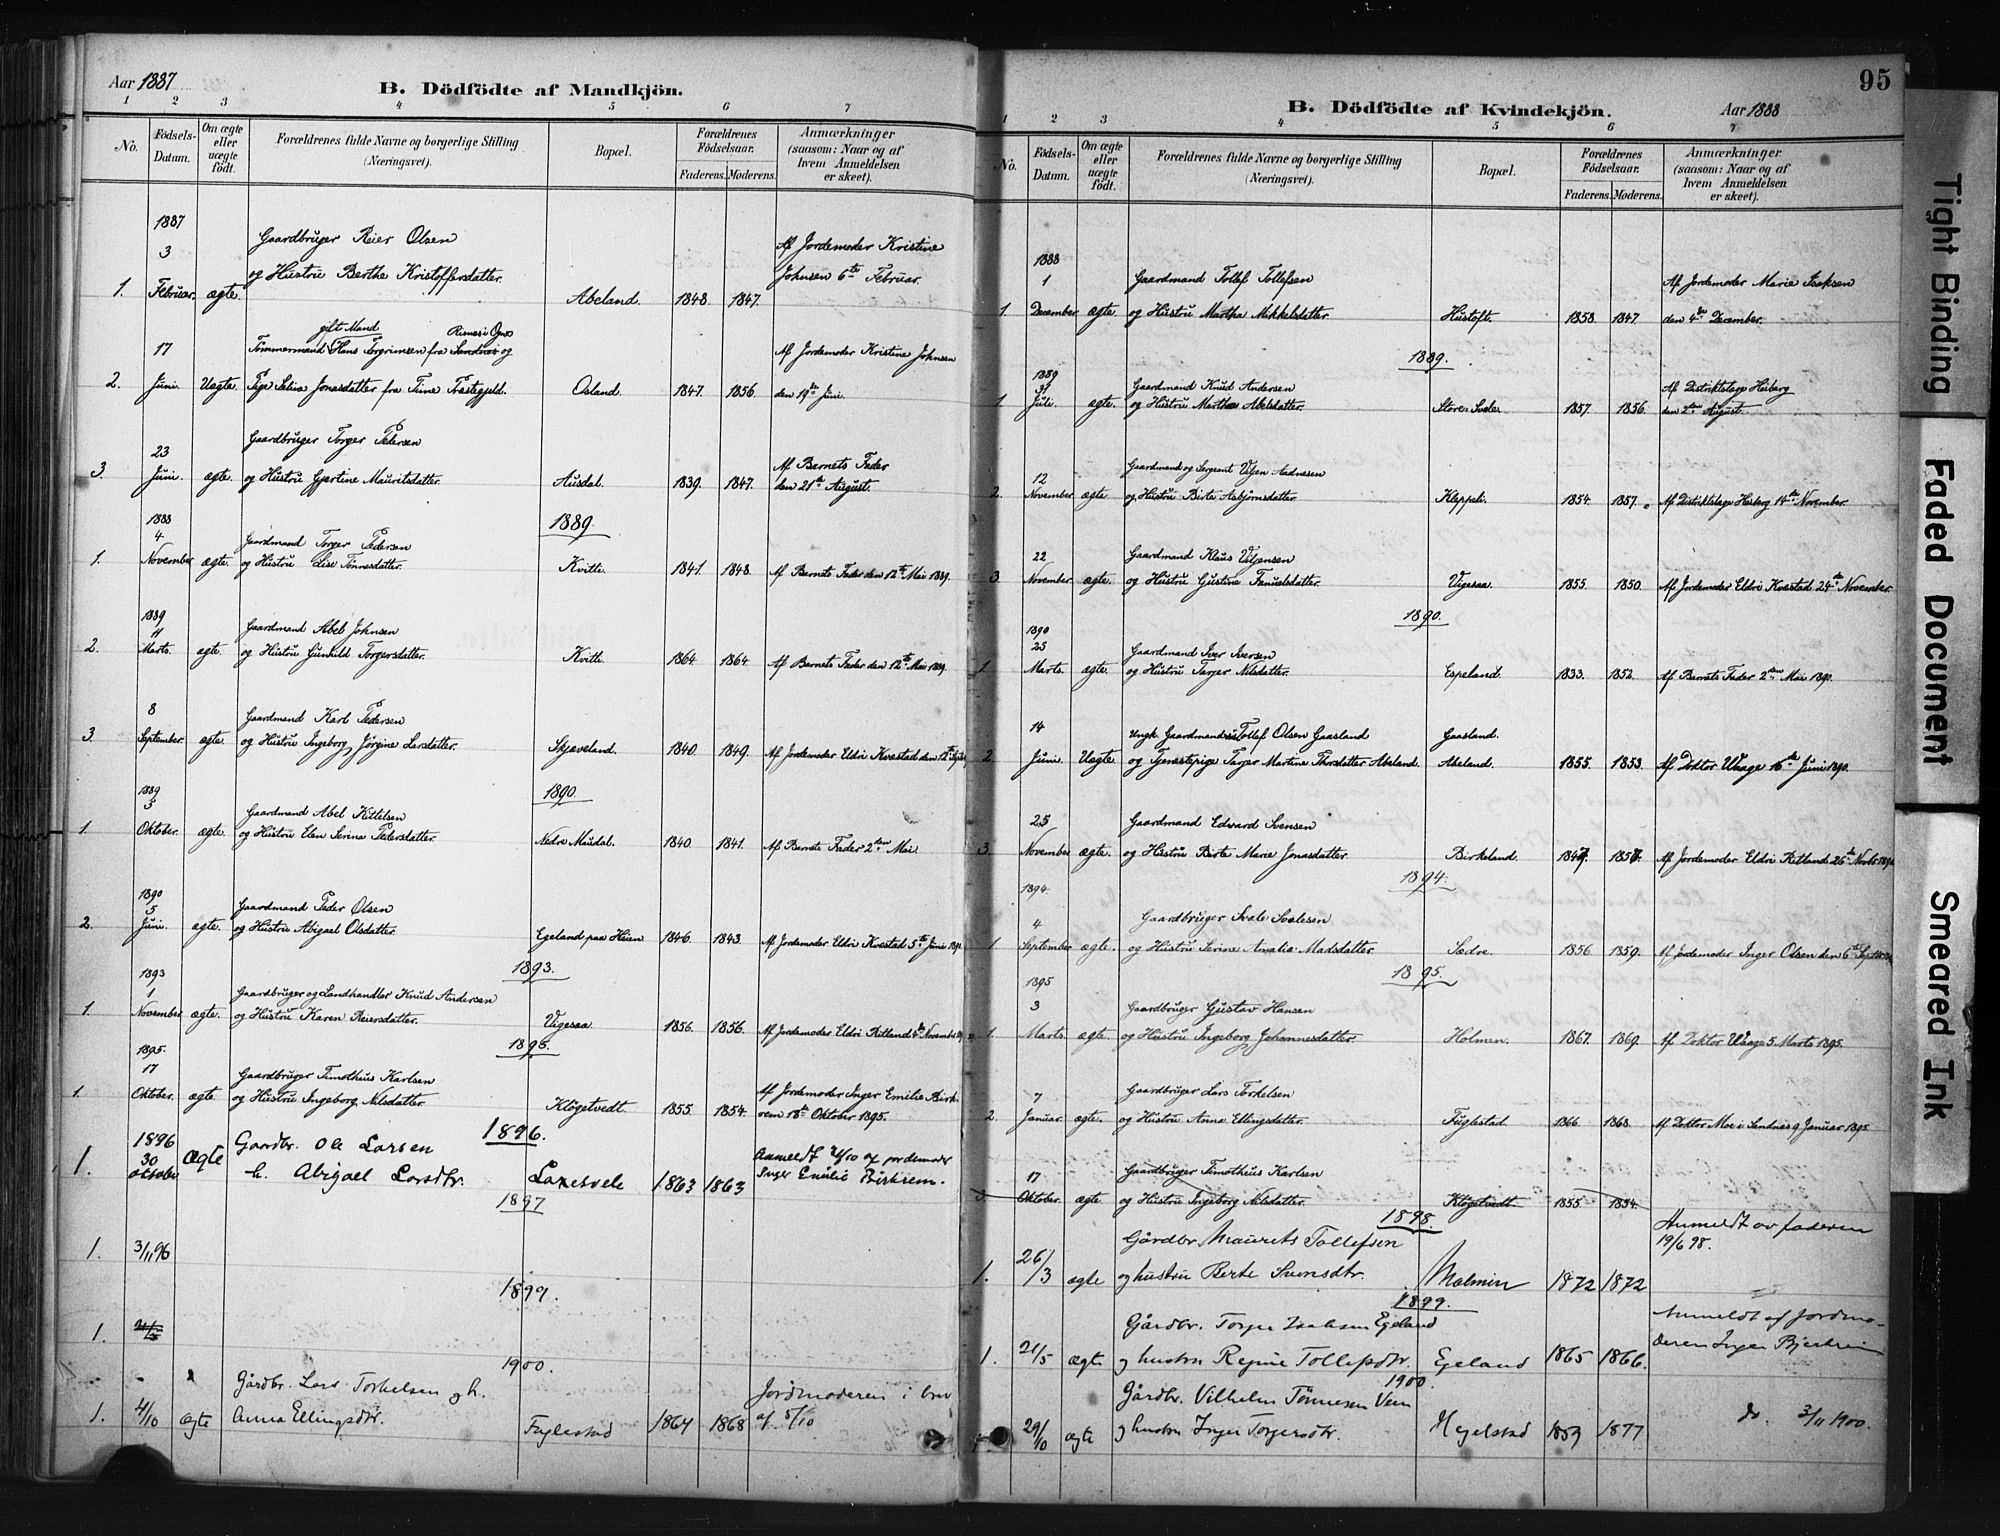 Aar 1887
B. Dödfödte af Mandkjön.
1 2 3 4 5 6 7
No.
Födsels-Datum.
Om ægte eller uægte födt.
Forældrenes fulde Navne og borgerlige Stilling (Næringsvei).
Bopæl.
Forældrenes Födselsaar.
Faderens. Moderens.
Anmærkninger (saasom: Naar og af hvem Anmeldelsen er skeet).
1887
3 Gaardbruger Reier Olsen Af Jordemoder Kristine
og Hustru Berthe Kristoffersdatter. Johnsen 6te Februar.
1. Februar. ægte. Abeland. 1848. 1847.
gift Mand
17 Tømmermand Hans Torgrimsen fra Sandnæs og Af Jordemoder Kristine Johnsen
2. Juni. Uægte. Pige Salina Jonasdatter fra Time Præstegjeld. Osland. 1847. 1856. den 19de Juni.
23 Gaardbruger Torger Pedersen Af Barnets Fader
3. Juni. ægte. og Hustru Gjertine Mauritsdatter. Ausdal. 1839. 1847. den 21de August.
1888 1889.
4 Gaardmand Torger Pedersen
1. November. ægte. og Hustru Lise Tønnesdatter. Kvitte. 1841. 1848. Af Barnets Fader den 12te Mai 1889.
1889
11 Gaardmand Abel Johnsen
2. Marts. ægte. og Hustru Gunhild Torgersdatter. Kvitte. 1864. 1864. Af Barnets Fader den 12te Mai 1889.
8 Gaardmand Karl Pedersen
3. September. ægte. og Hustru Ingeborg Jørgine Larsdatter. Skjæveland. 1840. 1849. Af Jordemoder Eldri Kvæstad den 12te
1889 1890.
3 Gaardmand Abel Kittelsen
1. Oktober. ægte. og Hustru Elen Serina Pedersdatter. Nedre Maudal. 1840. 1841. Af Barnets Fader 2den Mai.
1890
5 Gaardmand Peder Olsen
2. Juni. ægte. og Hustru Abigael Olsdatter. Egeland paa Heien 1846. 1843. Af Jordemoder Eldri Kvæstad 5te Juni
1893 1893.
1 Gaardbruger og Landhandler Knud Andersen
1. November ægte. og Hustru Karen Reiersdatter. Vigesaa 1856. 1856. Af Jordemoder Eldri Ritland November
1895. 1895.
17 Gaardbruger Timotheus Karlsen Af Jordemoder Inger Emilie Birk-
1. Oktober. ægte. og Hustru Ingeborg Nilsdatter. Kløgetvedt. 1855. 1854. rem 18de Oktober 1895.
1896 1896.
30 Gardbr. Ole Larsen Anmeldt af jordemoder
1. october ægte h. Abigael Larsdtr. Laxesvele 1863 1863 Inger Emilie Birkrem.
1897
1. 3/11 96
1899.
1. 21/5
1900.
Gårdbr. Lars Torkelsen og h. Jordmoderen i brev
1. 4/10 ægte Anna Ellingsdtr. Fuglestad 1864 1868 af 5/10
95
B. Dödfödte af Kvindekjön.
Aar 1888
1 2 3 4 5 6 7
No.
Födsels-Datum.
Om ægte eller uægte födt.
Forældrenes fulde Navne og borgerlige Stilling (Næringsvei).
Bopæl.
Forældrenes Födselsaar.
Faderens. Moderens.
Anmærkninger (saasom: Naar og af hvem Anmeldelsen er skeet).
1888
1 Gaardmand Tollef Tollefsen Af Jordemoder Marie Isaksen
1. December ægte. og Hustru Martha Mikkelsdatter. Hustoft. 1858. 1847. den 4de December.
1889.
1889
31 Gaardmand Knud Andersen Af Distriktslæge Heiberg
1 Juli. ægte. og Hustru Martha Abelsdatter. Store-Svele. 1857. 1856. den 2den August.
12 Gaardmand og Sergeant Aadnesen
2. November. ægte og Hustru Birte Asbjørnsdatter. Kleppeli. 1854. 1857. Af Distriktslæge Heiberg 14de November.
22 Gaardmand Klaus
3. November. ægte. og Hustru Gustine Fanuelsdatter. Vigesaa. 1855. 1850. Af Jordemoder Eldri Kvæstad 24de November.
1890.
1890
25 Gaardmand Iver Iversen
1. Marts. ægte. og Hustru Targer Nilsdatter. Espeland. 1833. 1852. Af Barnets Fader 2den Mai 1890.
14 Ungk. Gaardmandssøn Tollef Olsen Gaasland Gaasland.
2. Juni. Uægte. og Tjenestepige Targer Martine Thorsdatter Abeland. Abeland. 1855. 1853. Af Doktor Waage 16de Juni 1890.
25 Gaardmand Edvard Svensen
3. November ægte. og Hustru Birte Marie Jonasdatter. Birkeland. 1847. 1857. Af Jordemoder Eldri Ritland 26de
1894. 1894.
4 Gaardbruger Svale Svalesen
1 September ægte. og Hustru Serine Amalia Madsdatter. Sædre. 1856 1859. Af Jordemoder Inger Olsen den 6te
1895 1895.
3 Gaardbruger Gustav Hansen
1. Marts ægte. og Hustru Ingeborg Johannesdatter. Holmen. 1867. 1869. Af Doktor Waage 5 Marts 1895.
7 Gaardbruger Lars Torkelsen
2. Januar ægte. og Hustru Anna Ellingsdatter. Fuglestad 1866 1868. Af Doktor Moe i Sandnæs 9 Januar 1895.
17 Gaardbruger Timotheus Karlsen
3 Oktober. ægte og Hustru Ingeborg Nilsdatter. Kløgetvedt. 1855 1854.
1898.
Gårdbr Maurets Tollefsen Anmeldt av faderen
1. 26/3 ægte og hustru Berte Svensdtr. Malmin 1872 1872 19/6 98.
1899.
Gårdbr. Torger Isaksen Egeland Anmeldt af Jordmo-
1. 21/5 ægte og hustru Regine Tollefsdtr. Egeland 1865 1866 deren Inger Bjerkreim
1900.
Gårdbr. Vilhelm Tønnesen Veen
29/10 ægte og hustru Inger Torgersdtr. Hegelstad 1859 1877 do. 3/11 1900.
Tight Binding
Faded Document
Smeared Ink